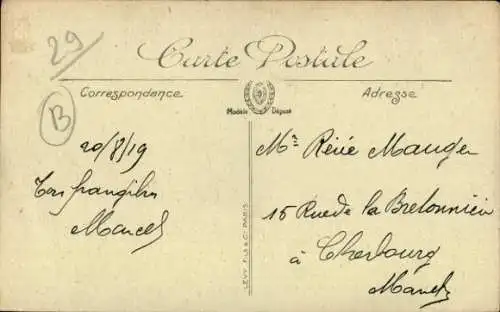 29
Carte Postale
Correspondance
Adresse
Modèle Déposé
B
20/8/19
Ton frangibus
Marcel
LEVY FILS & Cie PARIS
Mr Réné Mauger
15 Rue de la Bretonnière
à Cherbourg
Manche